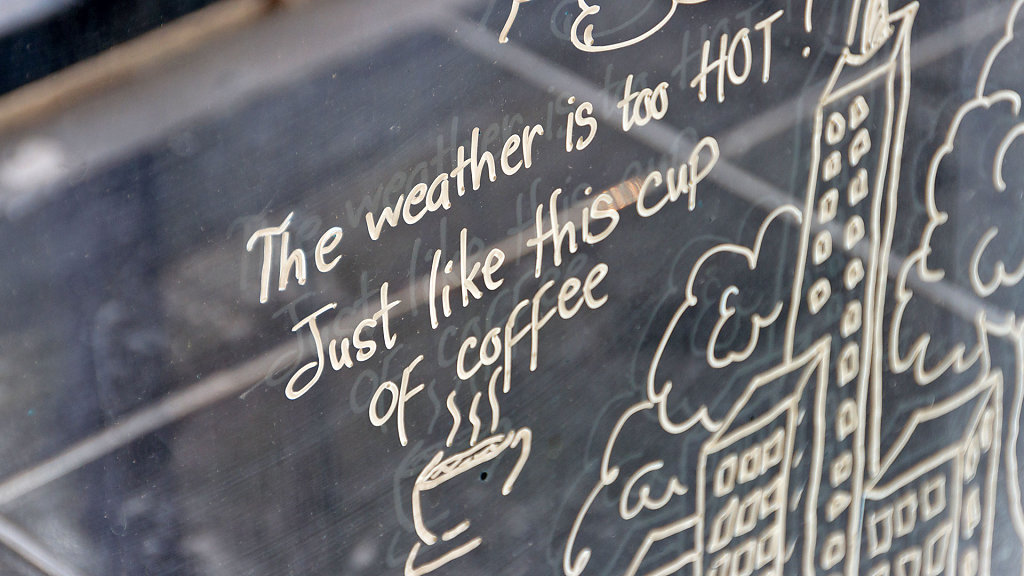 The weather is too HOT!
Just like this cup
of coffee